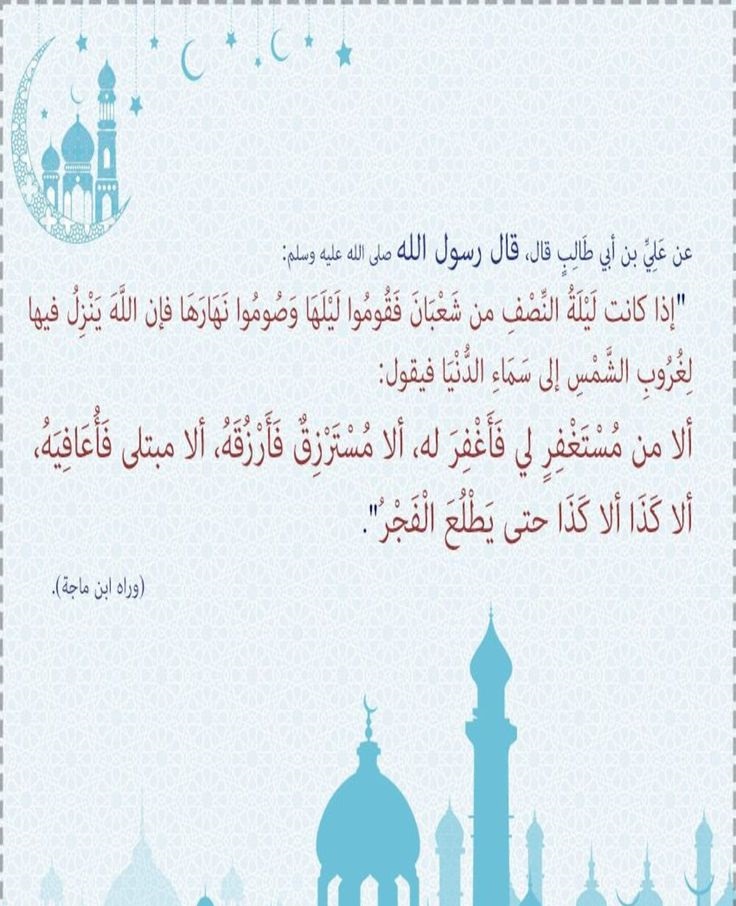 عن عَلِيِّ بن أبي طَالِبٍ قال، قال رسول الله صلى الله عليه وسلم:
"إذا كانت لَيْلَةُ النِّصْفِ من شَعْبَانَ فَقُومُوا لَيْلَهَا وَصُومُوا نَهَارَهَا فإن اللَّهَ يَنْزِلُ فيها
لِغُرُوبِ الشَّمْسِ إلى سَمَاءِ الدُّنْيَا فيقول:
ألا من مُسْتَغْفِرٍ لي فَأَغْفِرَ له، ألا مُسْتَرْزِقٌ فَأَرْزُقَهُ، ألا مبتلى فَأُعَافِيَهُ،
ألا كَذَا ألا كَذَا حتى يَطْلُعَ الْفَجْرُ".
(وراه ابن ماجة).